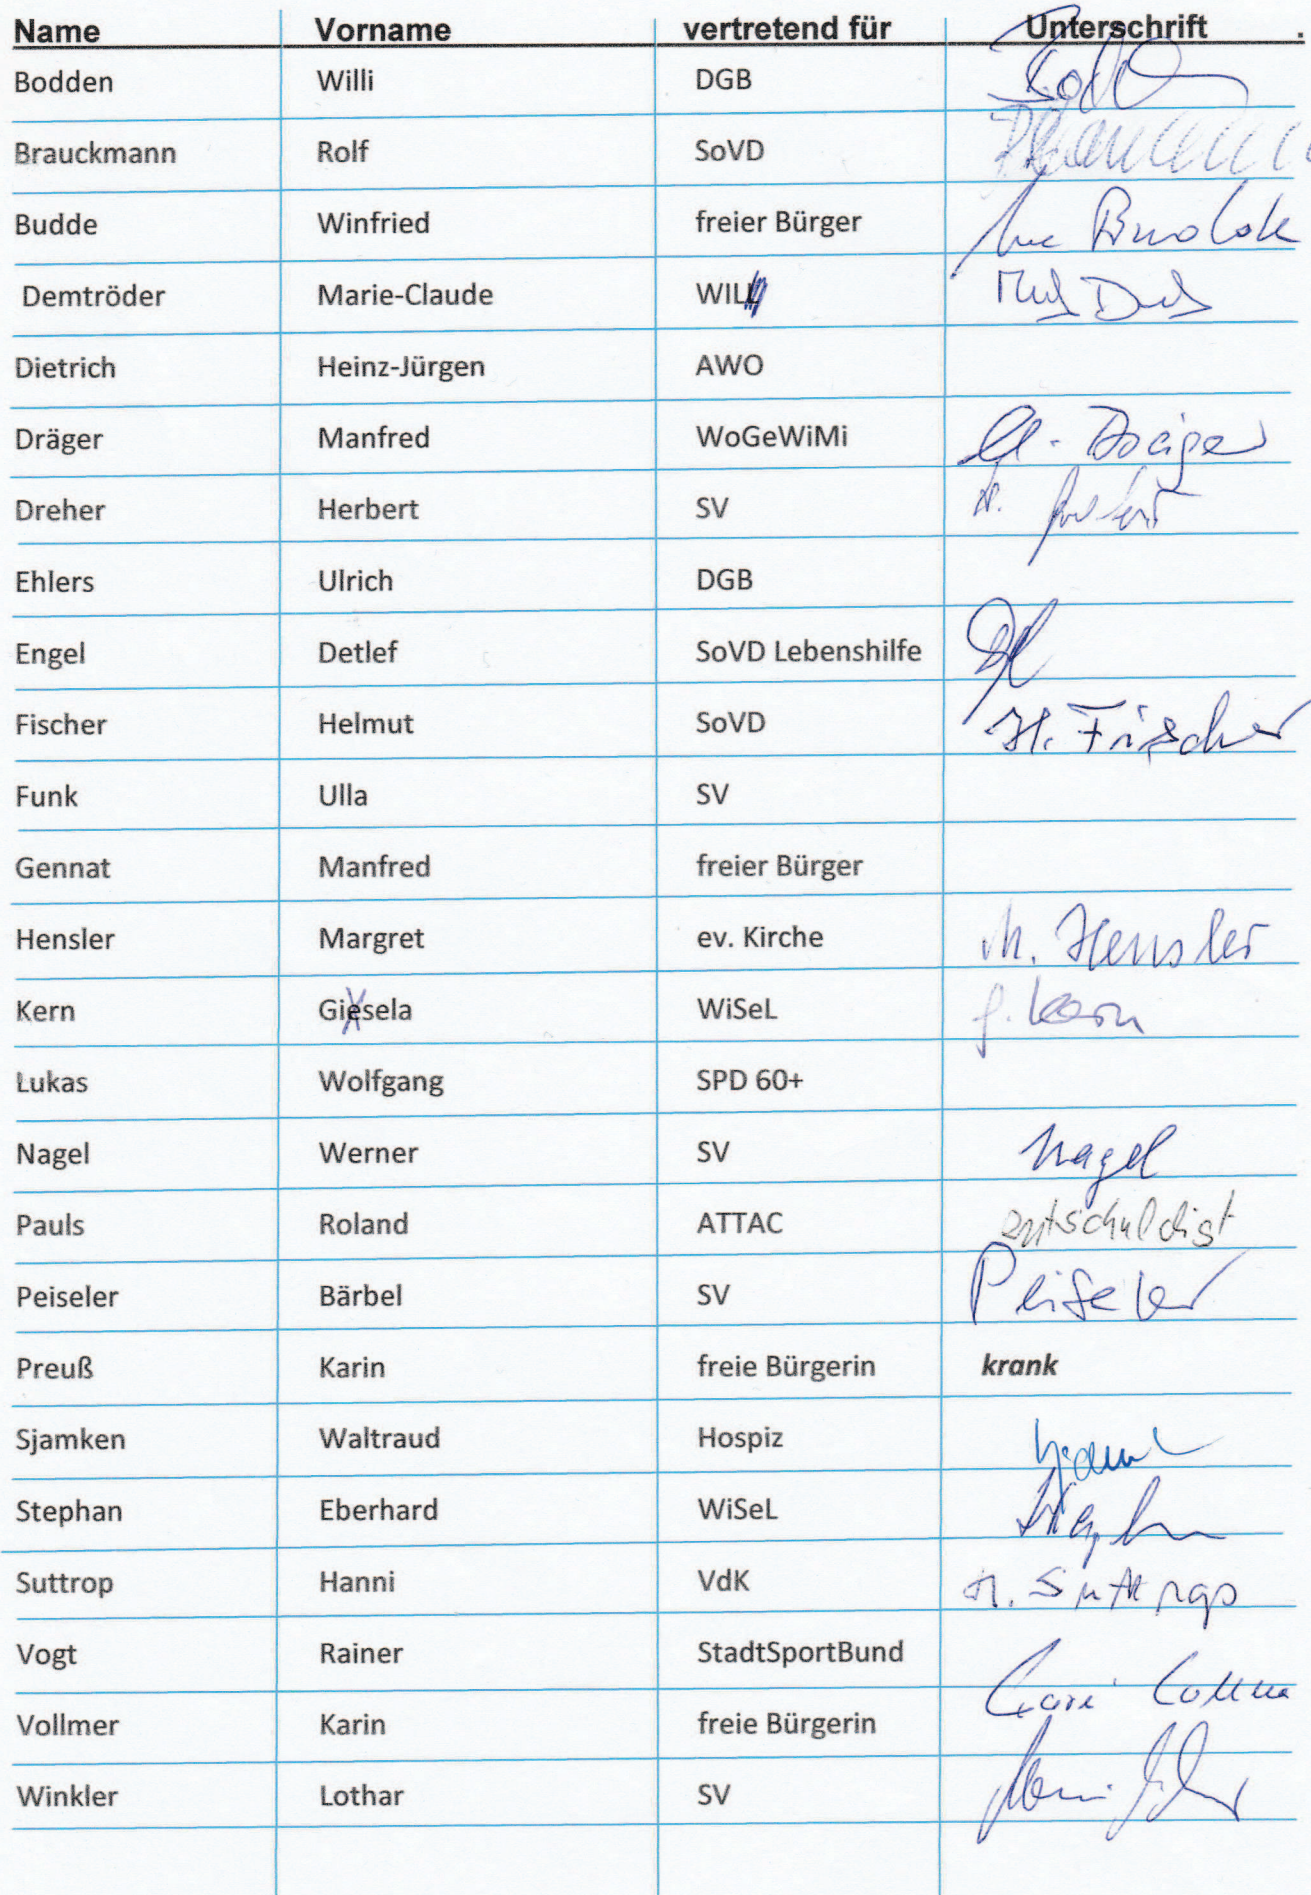 Name Vorname vertretend für Unterschrift .
Bodden Willi DGB
Brauckmann Rolf SoVD
Budde Winfried freier Bürger
Demtröder Marie-Claude WIL
Dietrich Heinz-Jürgen AWO
Dräger Manfred WoGeWiMi M. Dräger
Dreher Herbert SV
Ehlers Ulrich DGB
Engel Detlef SoVD Lebenshilfe
Fischer Helmut SoVD H. Fischer
Funk Ulla SV
Gennat Manfred freier Bürger
Hensler Margret ev. Kirche M. Hensler
Kern Gisela WiSeL G. Kern
Lukas Wolfgang SPD 60+
Nagel Werner SV Nagel
Pauls Roland ATTAC entschuldigt
Peiseler Bärbel SV Peiseler
Preuß Karin freie Bürgerin krank
Sjamken Waltraud Hospiz
Stephan Eberhard WiSeL
Suttrop Hanni VdK H. Suttrop
Vogt Rainer StadtSportBund
Vollmer Karin freie Bürgerin
Winkler Lothar SV